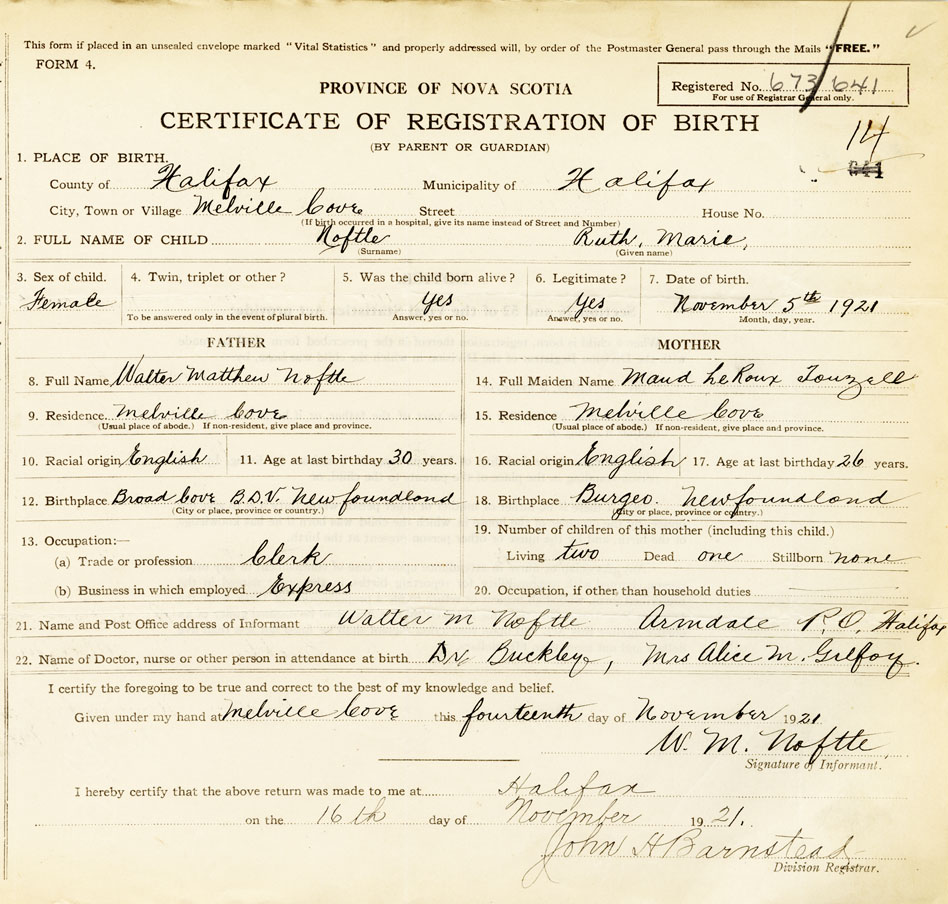 This form if placed in an unsealed envelope marked "Vital Statistics" and properly addressed will, by order of the Postmaster General pass through the Mails "FREE."
FORM 4.
PROVINCE OF NOVA SCOTIA
Registered No. 673 641
For use of Registrar General only.
CERTIFICATE OF REGISTRATION OF BIRTH
14
(BY PARENT OR GUARDIAN)
641
1. PLACE OF BIRTH.
County of Halifax Municipality of Halifax
City, Town or Village Melville Cove Street House No.
(If birth occurred in a hospital, give its name instead of Street and Number)
2. FULL NAME OF CHILD Noftle Ruth, Marie,
(Surname) (Given name)
3. Sex of child. 4. Twin, triplet or other? 5. Was the child born alive? 6. Legitimate? 7. Date of birth.
Female Yes Yes November 5th 1921
To be answered only in the event of plural birth. Answer, yes or no. Answer, yes or no. Month, day, year.
FATHER MOTHER
8. Full Name Walter Matthew Noftle 14. Full Maiden Name Maud LeRoux Touzell
9. Residence Melville Cove 15. Residence Melville Cove
(Usual place of abode.) If non-resident, give place and province. (Usual place of abode.) If non-resident, give place and province.
10. Racial origin English 11. Age at last birthday 30 years. 16. Racial origin English 17. Age at last birthday 26 years.
12. Birthplace Broad Cove B.D.V. Newfoundland 18. Birthplace Burgeo. Newfoundland
(City or place, province or country.) (City or place, province or country.)
19. Number of children of this mother (including this child.)
13. Occupation:—
(a) Trade or profession Clerk Living two Dead one Stillborn none
(b) Business in which employed Express 20. Occupation, if other than household duties
21. Name and Post Office address of Informant Walter M Noftle Armdale P.O. Halifax
22. Name of Doctor, nurse or other person in attendance at birth Dr. Buckley, Mrs Alice M. Gilfoy.
I certify the foregoing to be true and correct to the best of my knowledge and belief.
Given under my hand at Melville Cove this fourteenth day of November 1921
W. M. Noftle
Signature of Informant.
I hereby certify that the above return was made to me at Halifax
on the 16th day of November 1921.
John H Barnstead
Division Registrar.